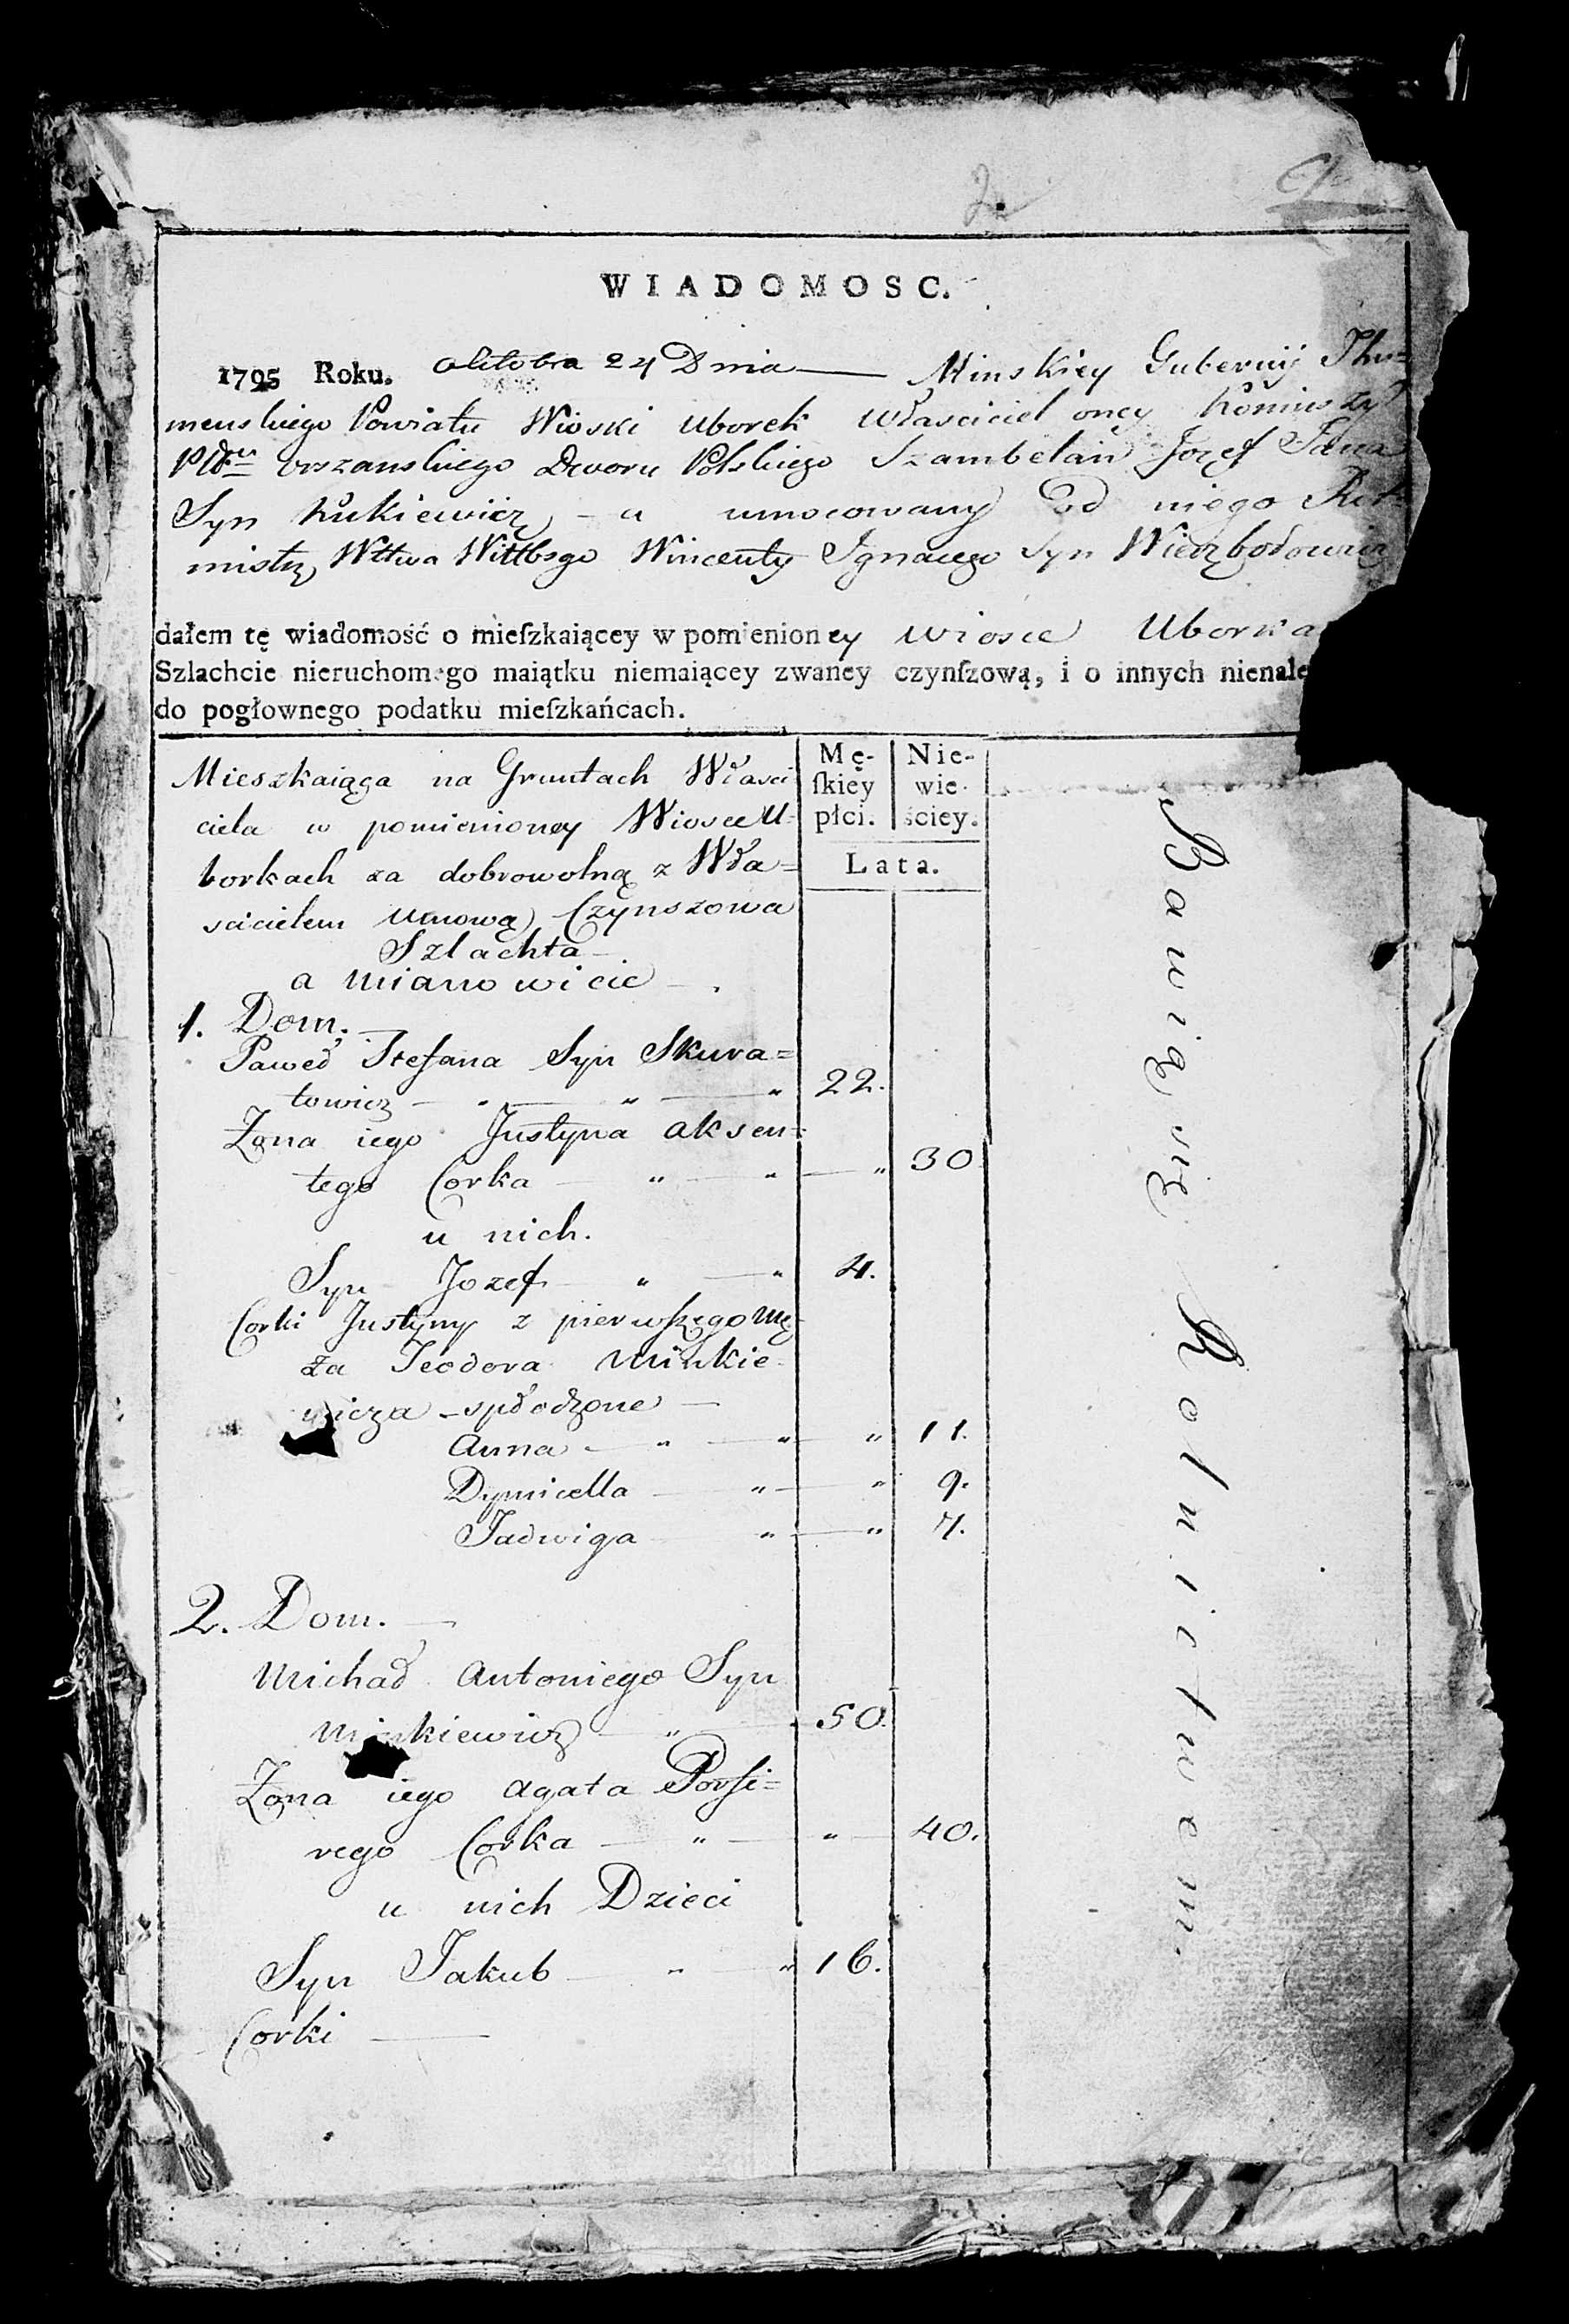 2
WIADOMOSC.
1795 Roku. Oktobra 24 Dnia — Minskiey Gubernij Jhu=
menskiego Powiatu Wioski Uborek Właściciel oney Koniuszy
Orszanskiego Dworu Polskiego Szambelan Jozef Jana
Syn Kukiewicz, — a umocowany Od niego Rot=
mistrz Wttwa Wittbsgo Wincenty Ignacego Syn Wierzbołowicz
dałem tę wiadomość o mieſzkaiącey w pomienioney wiosce Uborka
Szlachcie nieruchomego maiątku niemaiącey zwaney czynſzową, i o innych nienale
do pogłownego podatku mieſzkańcach.
Mę-
ſkiey
płci.
Nie-
wie-
ściey.
Lata.
Mieszkaiąca na Gruntach Właści
ciela w pomienioney Wiosce U=
borkach za dobrowolną z Wła=
scicielem Umową Czynszowa
Szlachta —
a Mianowicie — .
1. Dom. —
Paweł Stefana Syn Skura=
towicz — " — " — " 22.
Żona iego Justyna Aksen=
tego Corka — " — " — " 30.
u nich.
Syn Jozef — " — " 4.
Corki Justyny z pierwszego Mę
za Teodora Minkie=
wicza — spłodzone —
Anna — " — " — " 11.
Dymicella — " — " 9.
Jadwiga — " — " 7.
2. Dom. —
Michał Antoniego Syn
Minkiewicz — " — 50.
Żona iego Agata Porfi=
rego Corka — " — " — 40.
u nich Dzieci
Syn Jakub — " — " 16.
Corki —
Bawią się Rolnictwem.